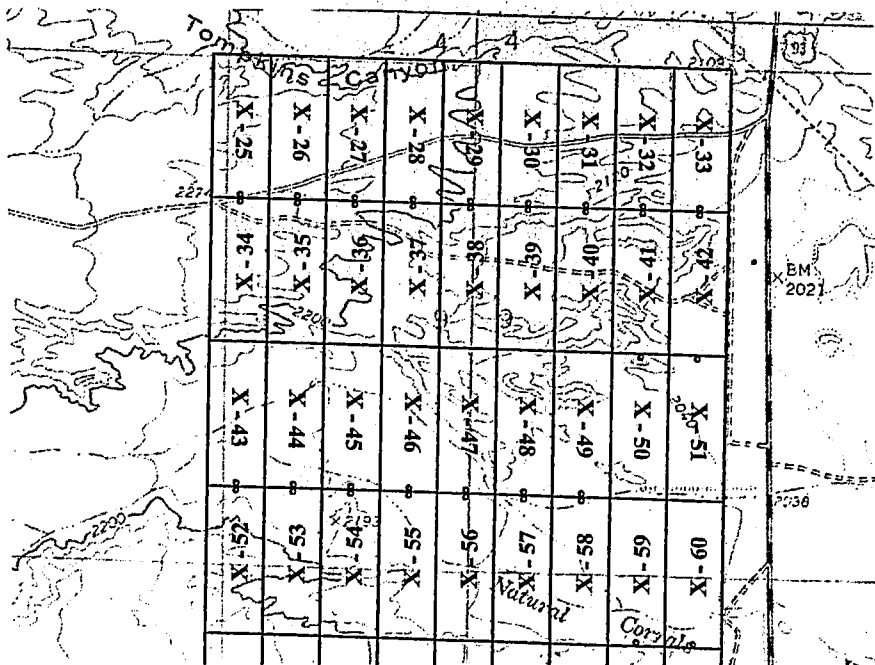 Tompkins Canyon
4 4
2109
93
X-25
X-26
X-27
X-28
X-29
X-30
X-31
X-32
X-33
2274
X-34
X-35
X-36
X-37
X-38
X-39
X-40
X-41
X-42
BM
2021
2200
X-43
X-44
X-45
X-46
X-47
X-48
X-49
X-50
X-51
2040
2038
2200
X 2193
X-52
X-53
X-54
X-55
X-56
X-57
X-58
X-59
X-60
Natural Corrals